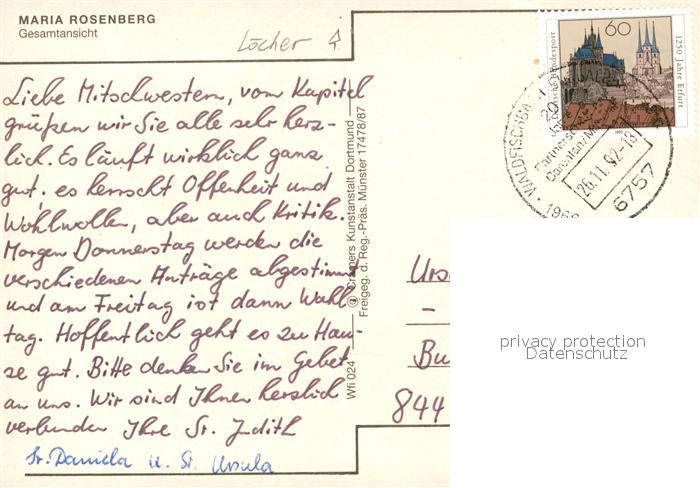 MARIA ROSENBERG
Gesamtansicht
Löcher
Liebe Mitschwestern, vom Kapitel
grüßen wir Sie alle sehr herz-
lich. Es läuft wirklich ganz
gut. es herrscht Offenheit und
Wohlwollen, aber auch Kritik.
Morgen Donnerstag werden die
verschiedenen Anträge abgestimmt
und am Freitag ist dann Wahl
tag. Hoffentlich geht es zu Hau-
se gut. Bitte denken Sie im Gebet
an uns. Wir sind Ihnen herzlich
verbunden Ihre Sr. Judith
Sr. Daniela u. Sr. Ursula
Wfl 024
@ Cramers Kunstanstalt Dortmund
Freigeg. d. Reg.-Präs. Münster 17478/87
60
Deutsche Bundespost
1250 Jahre Erfurt
WALDFISCHBA
Partnersc
26.11.92-13
6757
Urs
-
Bu
844
privacy protection
Datenschutz